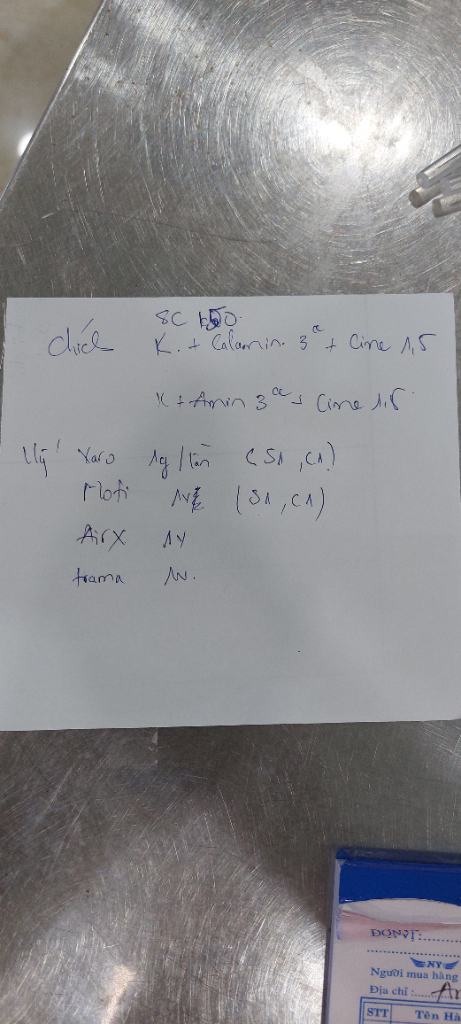 8C 150.
Chích K. + Calamin. 3cc + Cime 1,5
K + Amin 3cc + Cime 1,5
Uý Varo 1g/lần (S1, C1)
Mofi 1v (S1, C1)
AirX 1v
trama 1v.
ĐQNVT:
NY
Người mua hàng
Địa chỉ :
STT Tên Hà